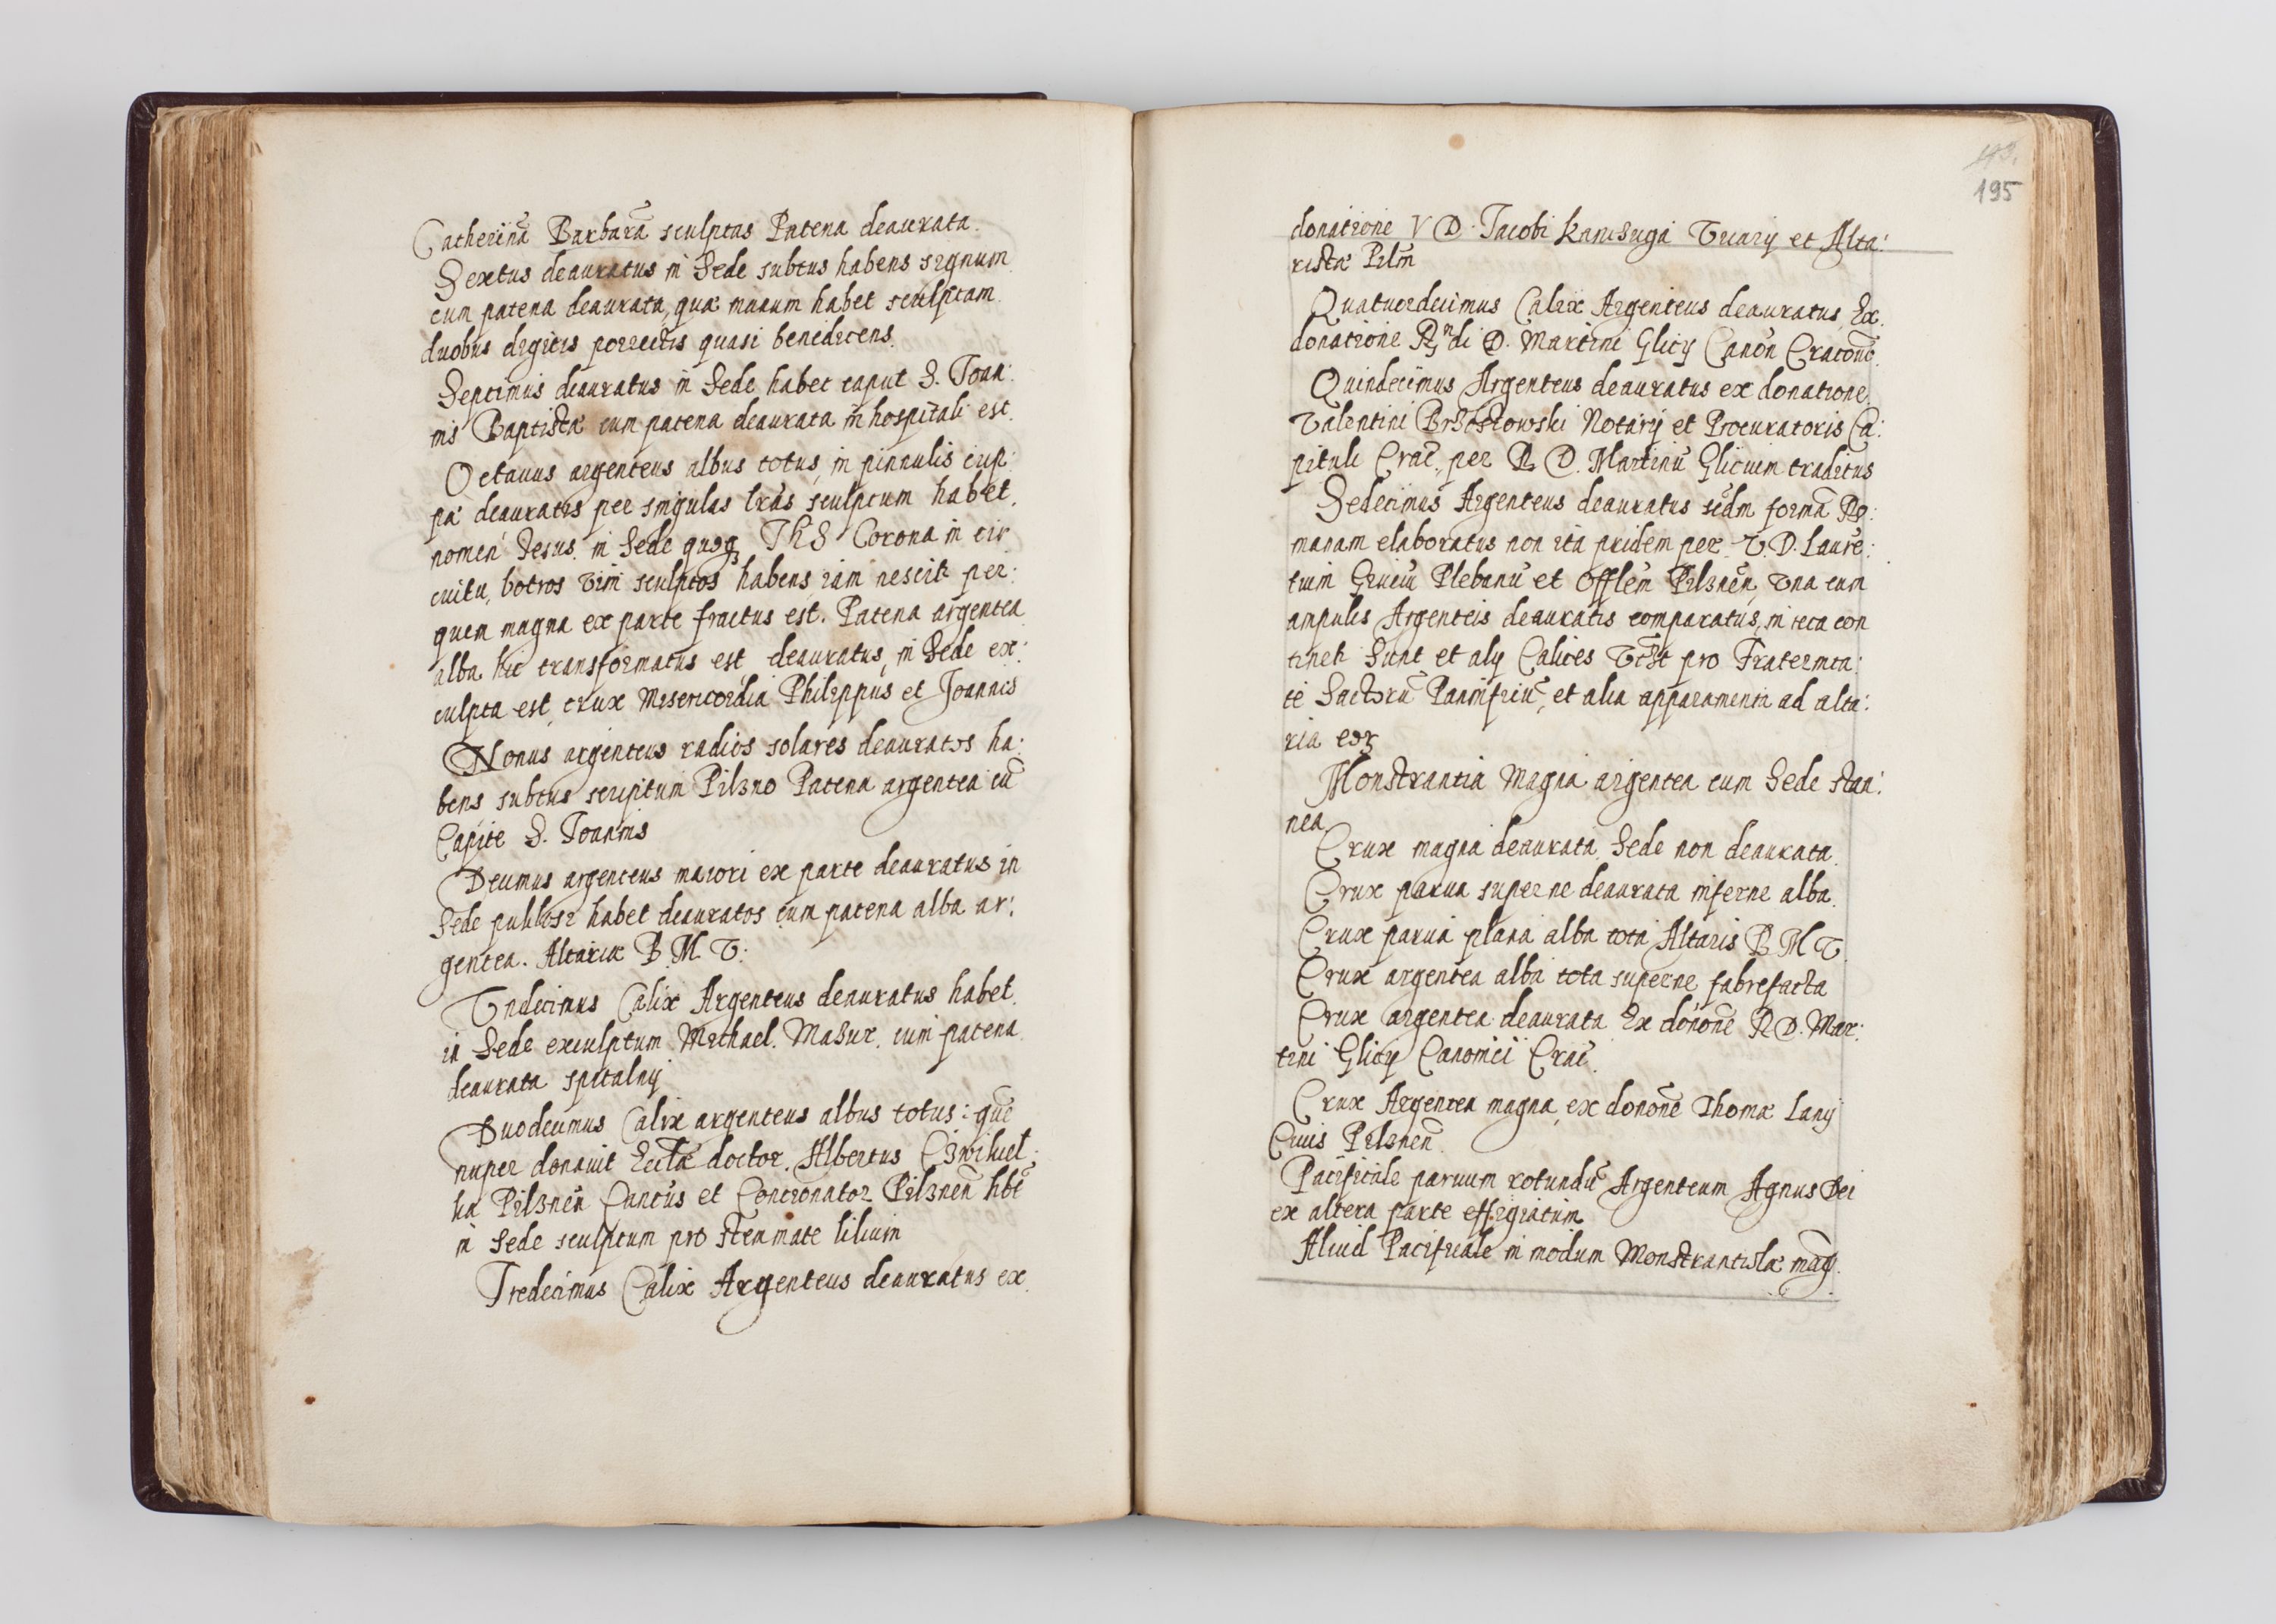 Catherinā Barbarā sculptas Patena deaurata.
Sextus deauratus in Sede subtus habens signum
cum patena deaurata, quæ manum habet sculptam
duobus digitis porrectis quasi benedicens.
Septimus deauratus in Sede habet caput S. Joan:
nis Baptistæ cum patena deaurata in hospitali est.
Octauus argenteus albus totus, in pinnulis cup:
pæ deauratis per singulas lrās sculptum habet.
nomen Jesus. in Sede quoq3 IhS Corona in cir
cuitu, botros vini sculptos habens, iam nescitr per:
quem magna ex parte fractus est. Patena argentea
alba hic transformatus est deauratus, in Sede ex:
culpta est, crux Misericordia Philippus et Joannes
Nonus argenteus radios solares deauratos ha:
bens subtus scriptum Pilzno Patena argentea cū
Capite S. Joannis
Decimus argenteus maiori ex parte deauratus in
Sede habet deauratos cum patena alba ar:
gentea. Altaria B. M. V:
Vndecimus Calix Argenteus deauratus habet.
in Sede exculptum Michael. Mazur. cum patena
deaurata spitalny
Duodecimus Calix argenteus albus totus: quē
nuper donauit Ecclæ doctor. Albertus
Pilznēn Cancūs et Concionator Pilznēn hbt
in Sede sculptum pro stemmate lilium
Tredecimus Calix Argenteus deauratus ex.
195
donatione V D. Jacobi Vicarij et Alta:
ristæ Pilzn
Quatuordecimus Calix Argenteus deauratus, Ex.
donatione Rndi D. Martini Glicij Canōn Cracouē.
Quindecimus Argenteus deauratus ex donatione.
Valentini Brzostowski Notarij et Procuratoris Ca:
pituli Crac., per R D. Martinū Glicium traditus
Sedecimus Argenteus deauratus scdm formā Ro:
manam elaboratus non ita pridem per V. D. Laurē:
tium Plebanū et Offlēm Pilznēn, vna cum
ampulis Argenteis deauratis comparatus, in teca con
tinetr Sunt et alij Calices pro Fraternita:
te et alia apparamenta ad alta:
ria eor
Monstrantia Magna argentea cum Sede stan:
nea
Crux magna deaurata Sede non deaurata.
Crux parua superne deaurata inferne alba.
Crux parua plana alba tota Altaris B M V
Crux argentea alba tota superne, fabrefacta
Crux argentea deaurata Ex donōne R D. Mar:
tini Glicij Canonici Crac.
Crux Argentea magna, ex donōne Thomæ Lany
Ciuis Pilznēn
Pacificale paruum rotundū Argenteum Agnus Dei
ex altera parte effigiatum
Aliud Pacificale in modum Monstrantiolæ mag.